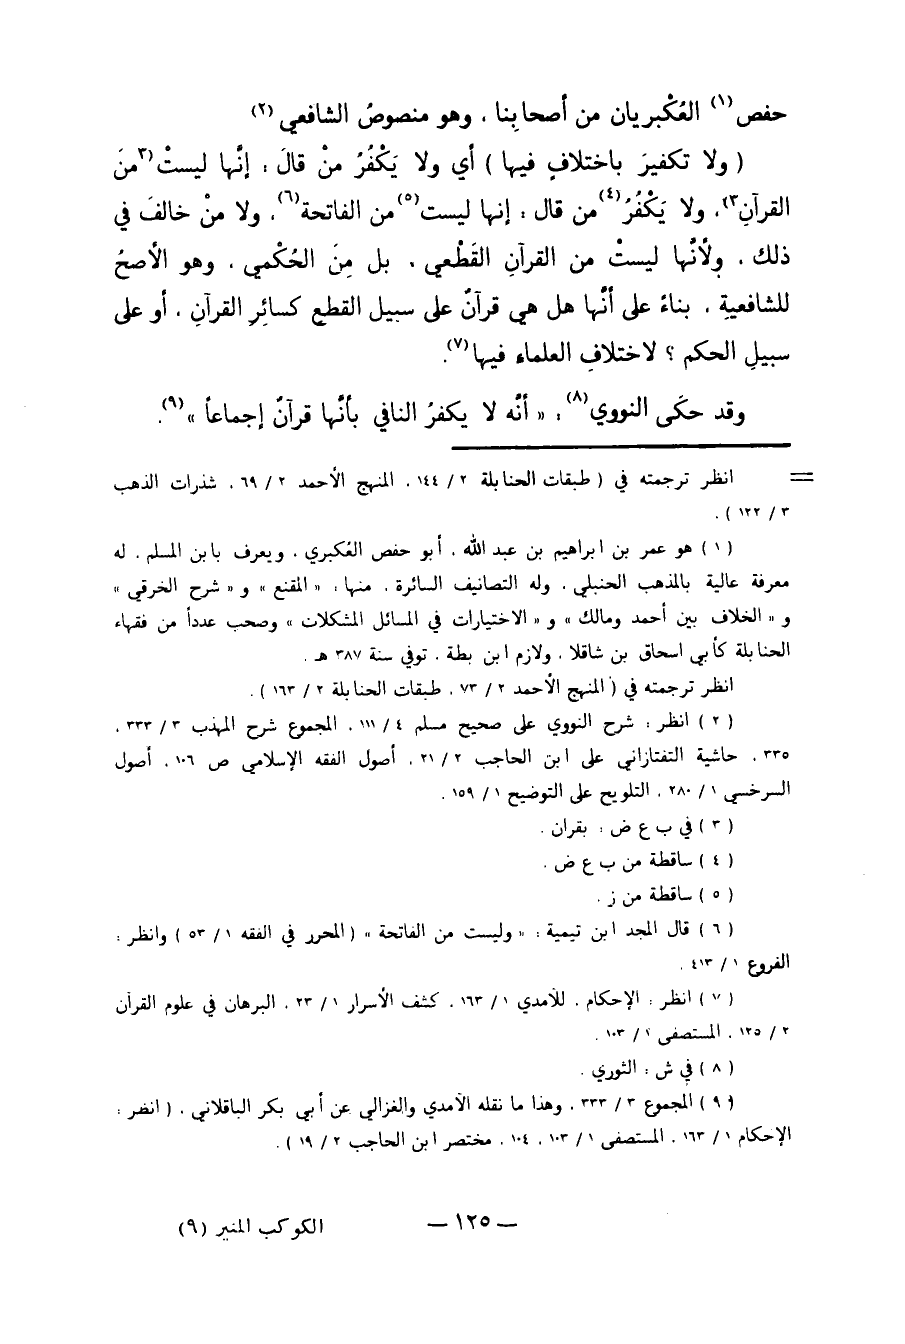 حفص(١) العُكْبريان من أصحابِنا ، وهو منصوصُ الشافعي(٢)
( ولا تكفيرَ باختلافٍ فيها ) أي ولا يَكْفُرُ منْ قالَ : إنَّها ليستْ(٣ منَ
القرآنِ٣)، ولا يَكْفُرُ(٤) من قال : إنها ليست(٥) من الفاتحة(٦)، ولا منْ خالفَ في
ذلك ، ولأنَّها ليستْ من القرآنِ القَطْعي ، بل مِنَ الحُكْمي ، وهو الأصحُ
للشافعيةِ ، بناءً على أنَّها هل هي قرآنٌ على سبيل القطعِ كسائِرِ القرآنِ ، أو على
سبيلِ الحكم ؟ لاختلافِ العلماء فيها(٧).
وقد حكَى النووي(٨): « أنَّه لا يكفرُ النافي بأنَّها قرآنٌ إجماعاً »(٩).
= انظر ترجمته في ( طبقات الحنابلة ٢ / ١٤٤ ، المنهج الأحمد ٢ / ٦٩ ، شذرات الذهب
٣ / ١٢٢ ) .
( ١ ) هو عمر بن ابراهيم بن عبد الله ، أبو حفص العُكبري ، ويعرف بابن المسلم ، له
معرفة عالية بالمذهب الحنبلي ، وله التصانيف السائرة ، منها : « المقنع » و « شرح الخرقي »
و « الخلاف بين أحمد ومالك » و « الاختيارات في المسائل المشكلات » وصحب عدداً من فقهاء
الحنابلة كأبي اسحاق بن شاقلا ، ولازم ابن بطة ، توفي سنة ٣٨٧ هـ .
انظر ترجمته في ( المنهج الأحمد ٢ / ٧٣ ، طبقات الحنابلة ٢ / ١٦٣ ) .
( ٢ ) انظر : شرح النووي على صحيح مسلم ٤ / ١١١ ، المجموع شرح المهذب ٣ / ٣٣٣ ،
٣٣٥ ، حاشية التفتازاني على ابن الحاجب ٢ / ٢١ ، أصول الفقه الإسلامي ص ١٠٦ ، أصول
السرخسي ١ / ٢٨٠ ، التلويح على التوضيح ١ / ١٥٩ .
( ٣ ) في ب ع ض : بقران .
( ٤ ) ساقطة من ب ع ض .
( ٥ ) ساقطة من ز .
( ٦ ) قال المجد ابن تيمية : « وليست من الفاتحة » ( المحرر في الفقه ١ / ٥٣ ) وانظر :
الفروع ١ / ٤١٣ .
( ٧ ) انظر : الإحكام ، للآمدي ١ / ١٦٣ ، كشف الأسرار ١ / ٢٣ ، البرهان في علوم القرآن
٢ / ١٢٥ ، المستصفى ١ / ١٠٣ .
( ٨ ) في ش : الثوري .
( ٩ ) المجموع ٣ / ٣٣٣ ، وهذا ما نقله الآمدي والغزالي عن أبي بكر الباقلاني ، ( انضر :
الإحكام ١ / ١٦٣ ، المستصفى ١ / ١٠٣ ، ١٠٤ ، مختصر ابن الحاجب ٢ / ١٩ ) .
— ١٢٥ —
الكوكب المنير (٩)